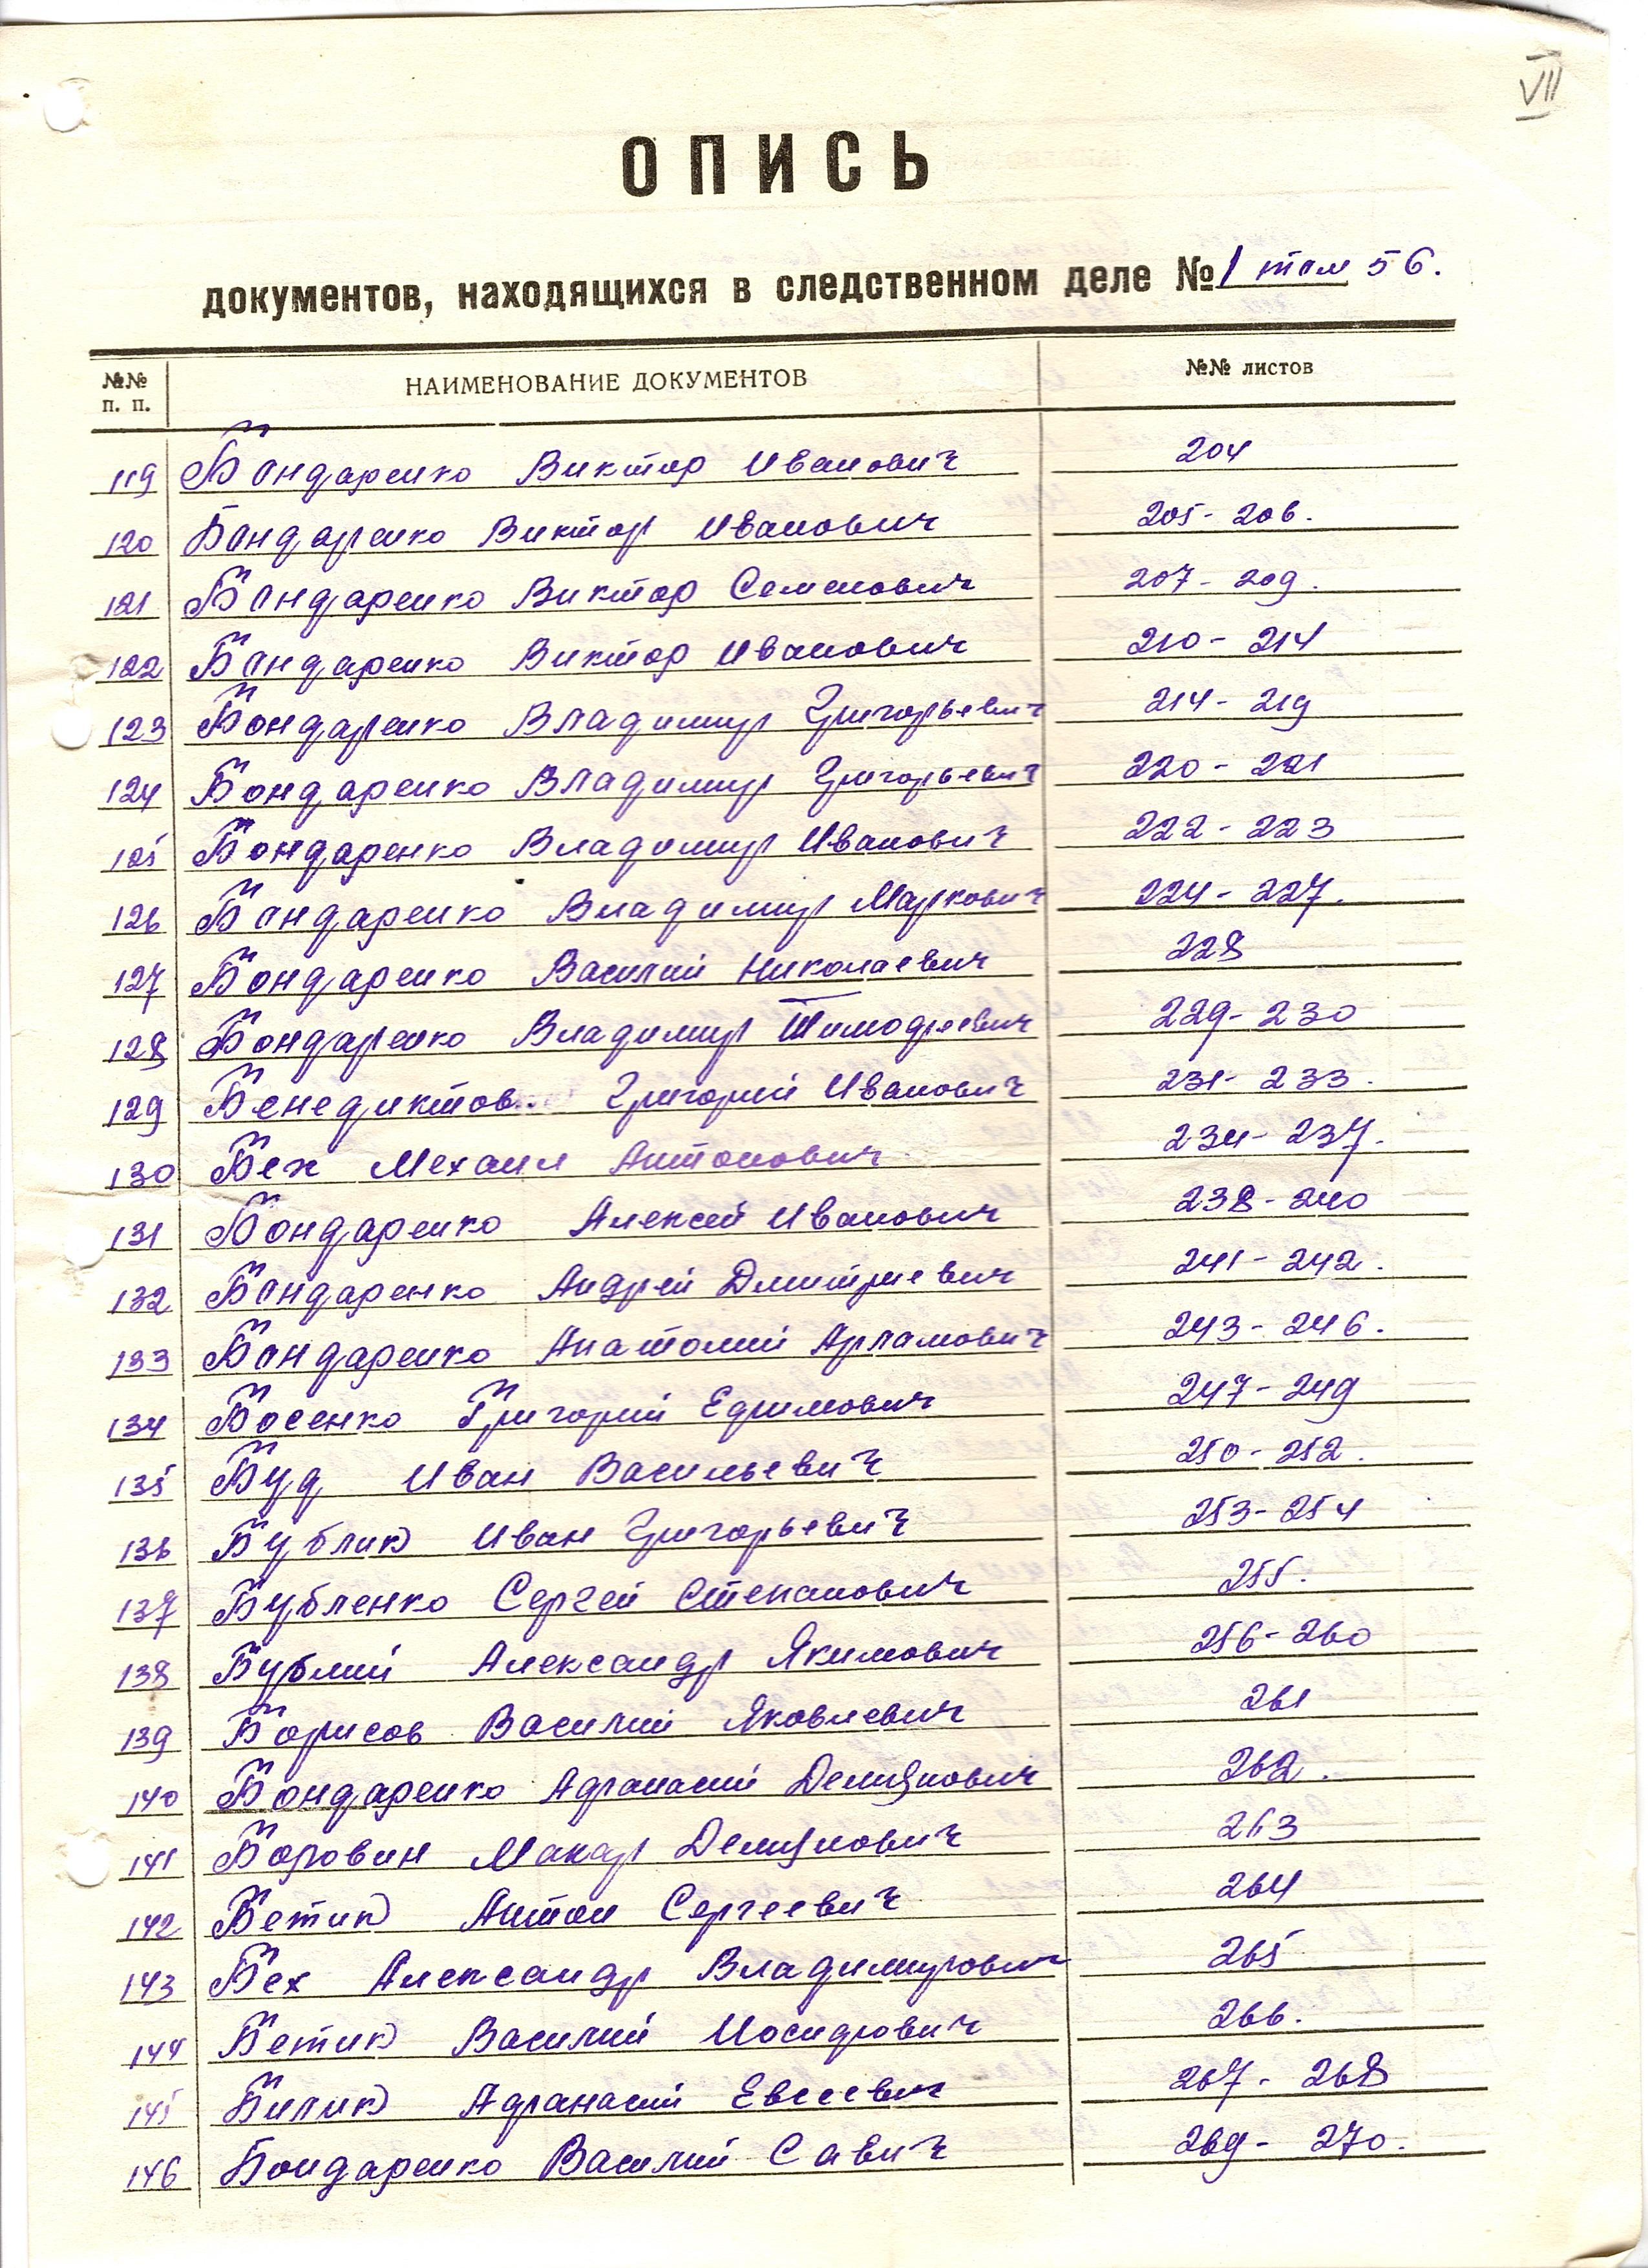 VII
ОПИСЬ
документов, находящихся в следственном деле № 1 том 56.
№№ п. п. НАИМЕНОВАНИЕ ДОКУМЕНТОВ №№ листов
119 Бондаренко Виктор Иванович 204
120 Бондаренко Виктор Иванович 205-206.
121 Бондаренко Виктор Семенович 207-209.
122 Бондаренко Виктор Иванович 210-214
123 Бондаренко Владимир Григорьевич 214-219
124 Бондаренко Владимир Григорьевич 220-221
125 Бондаренко Владимир Иванович 222-223
126 Бондаренко Владимир Маркович 224-227.
127 Бондаренко Василий Николаевич 228
128 Бондаренко Владимир Тимофеевич 229-230
129 Бенедиктов Григорий Иванович 231-233.
130 Бех Мехаил Антонович 234-237.
131 Бондаренко Алексей Иванович 238-240
132 Бондаренко Андрей Дмитриевич 241-242.
133 Бондаренко Анатолий Арламович 243-246.
134 Босенко Григорий Ефимович 247-249
135 Буд Иван Васильевич 250-252.
136 Бублик Иван Григорьевич 253-254
137 Бубленко Сергей Степанович 255.
138 Бублий Александр Якимович 256-260
139 Борисов Василий Яковлевич 261
140 Бондаренко Афанасий Демянович 262.
141 Боровин Макар Демянович 263
142 Бетик Антон Сергеевич 264
143 Бех Александр Владимирович 265
144 Бетик Василий Иосифович 266.
145 Билик Афанасий Евсеевич 267-268
146 Бондаренко Василий Савич 269-270.